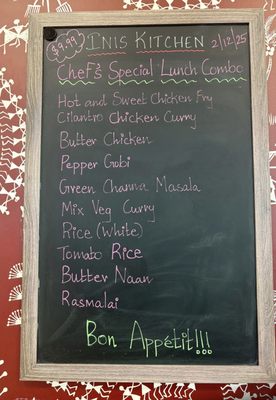 $9.99 INIS KITCHEN 2/12/25
Chef's Special Lunch Combo
Hot and Sweet Chicken Fry
Cilantro Chicken Curry
Butter Chicken
Pepper Gobi
Green Channa Masala
Mix Veg Curry
Rice (White)
Tomato Rice
Butter Naan
Rasmalai
Bon Appétit!!!